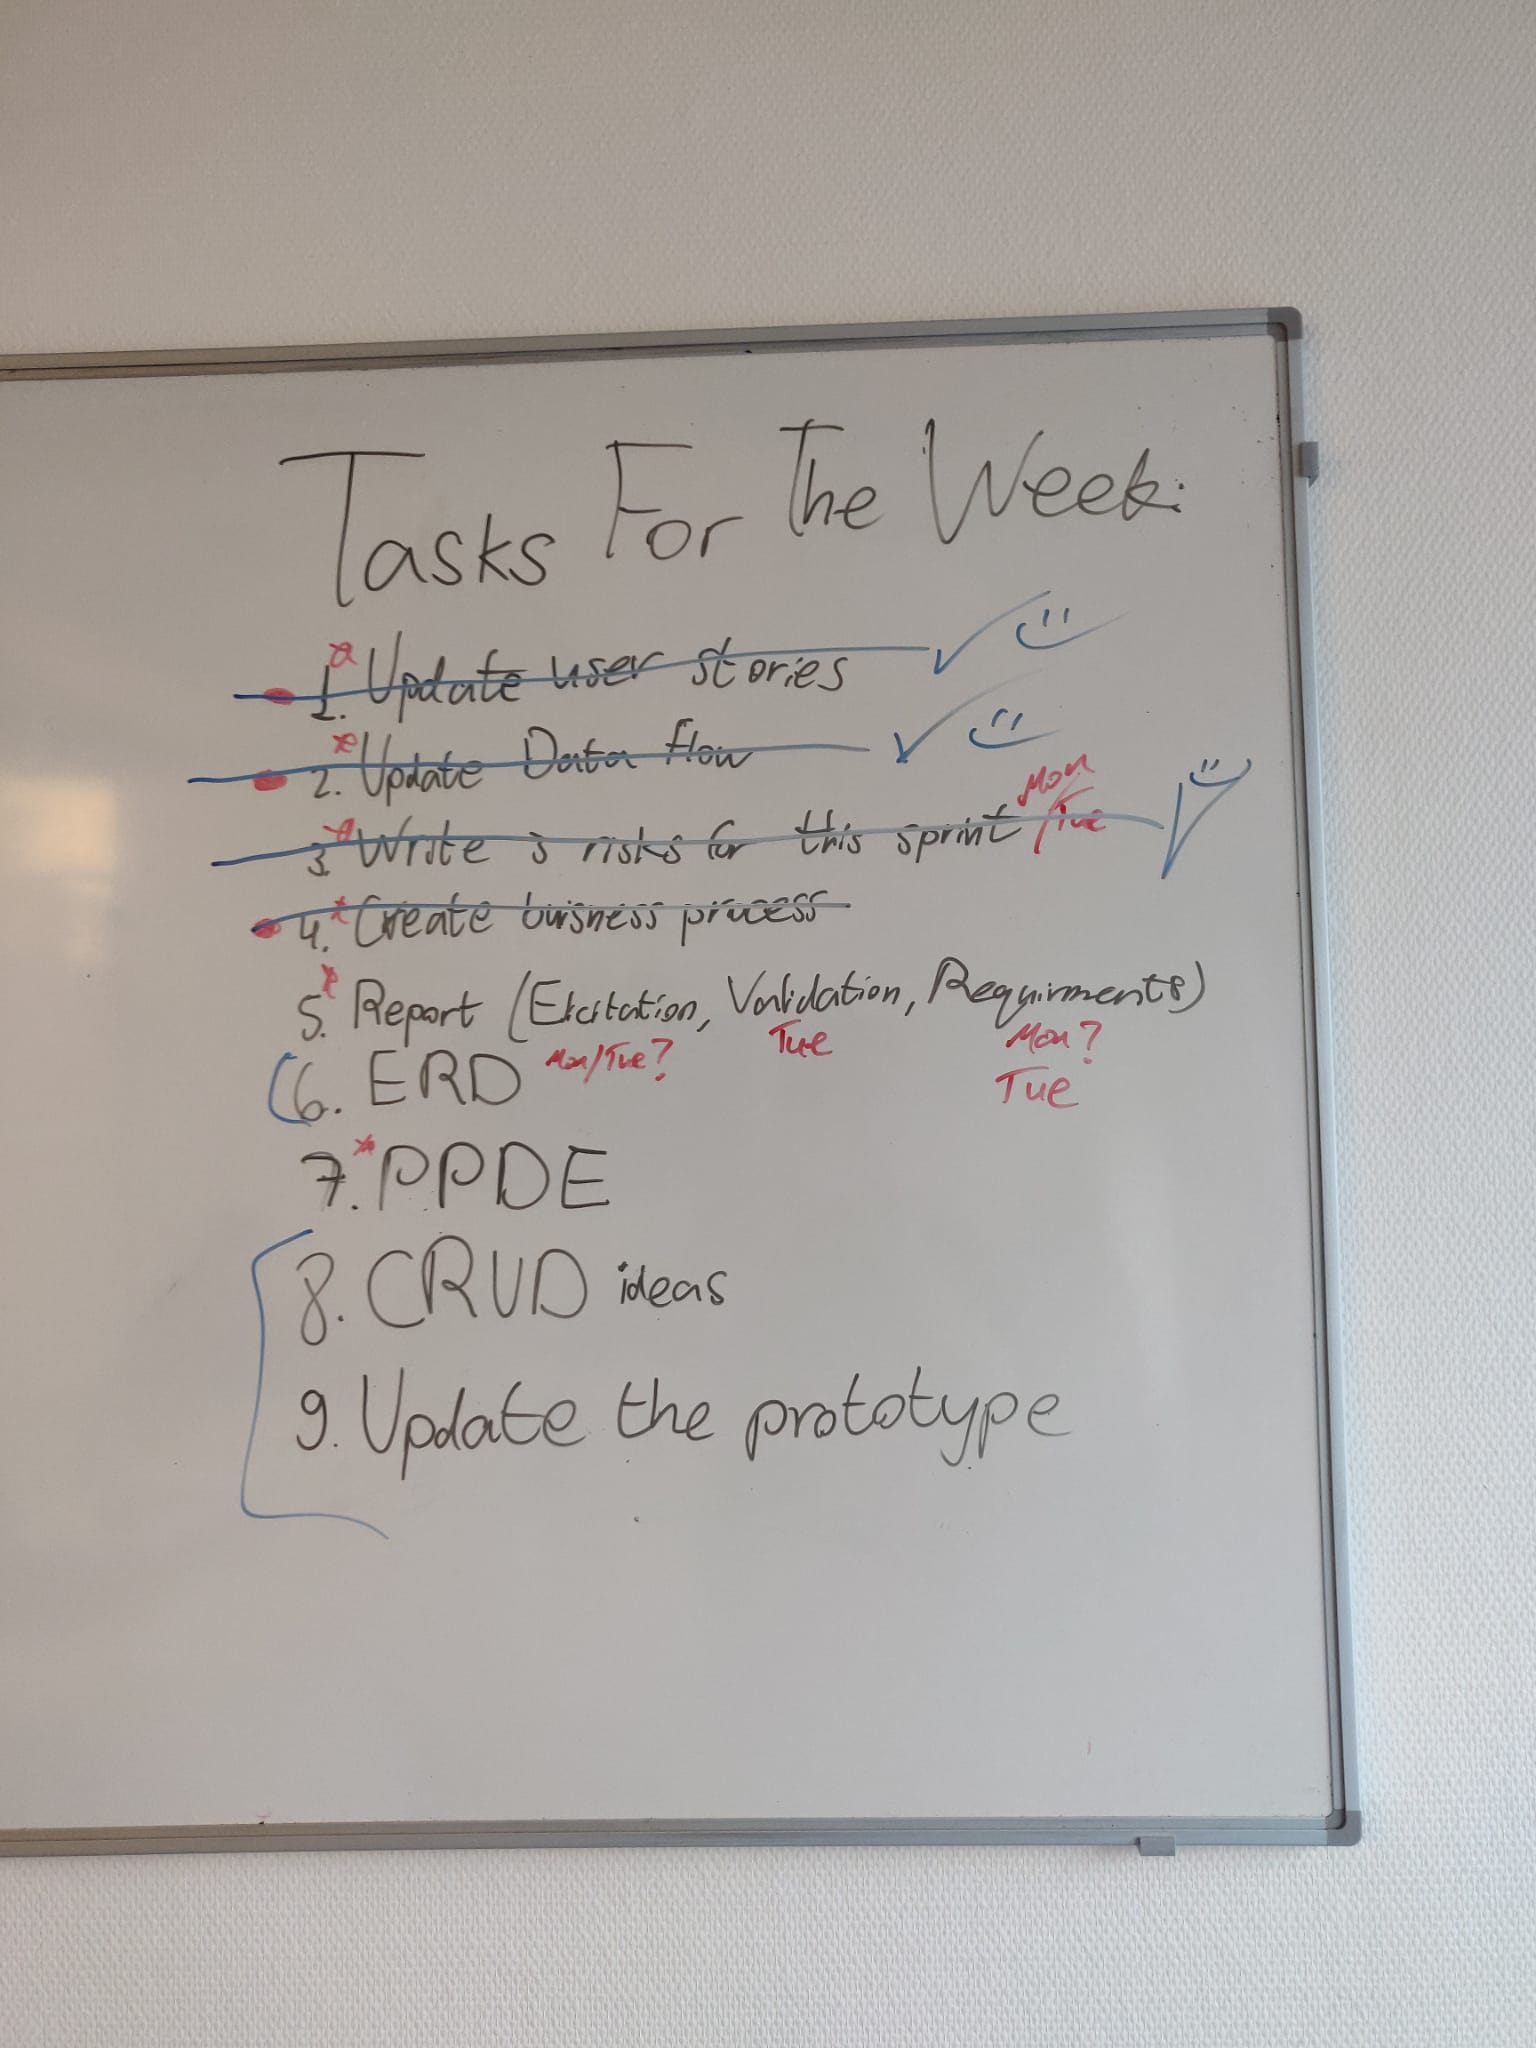 Tasks For The Week:
1.* Update user stories
2.* Update Data flow
Mon
3.* Write 3 risks for this sprint /Tue
4.* Create buisness process
5.* Report (Elicitation, Validation, Requirments)
Mon/Tue? Tue Mon?
Tue
6. ERD
7.* PPDE
8. CRUD ideas
9. Update the prototype